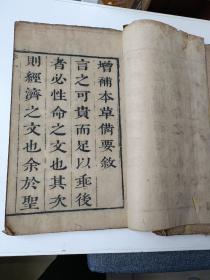 增補本草備要敘
言之可貴而足以垂後
者必性命之文也其次
則經濟之文也余於聖